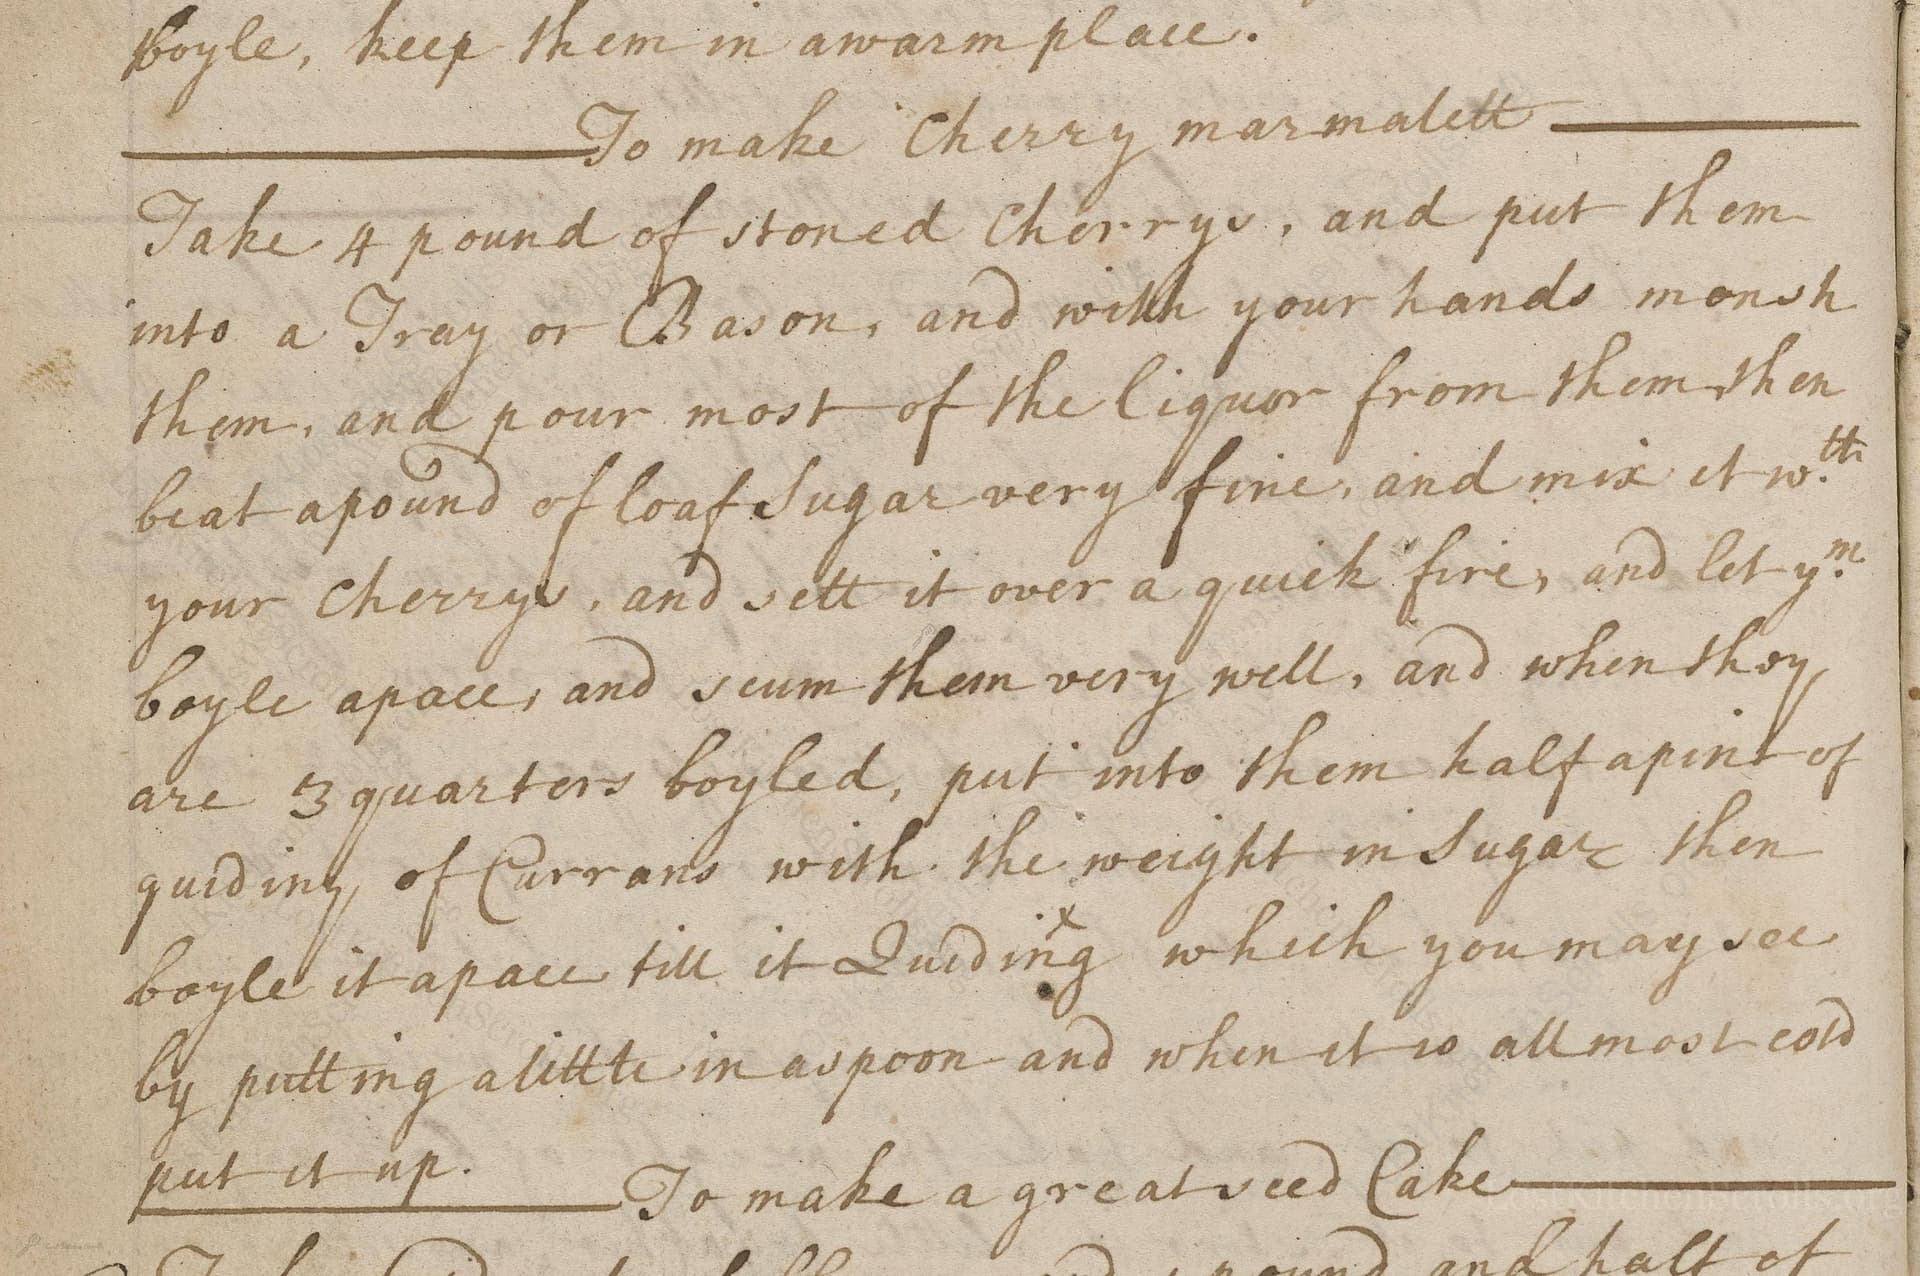 boyle, keep them in a warm place.
To make Cherry marmalett
Take 4 pound of stoned Cherrys, and put them
into a Tray or Bason, and with your hands monsh
them, and pour most of the liquor from them, then
beat a pound of loaf Sugar very fine, and mix it w.th
your Cherrys, and sett it over a quick fire, and let y.m
boyle apace, and scum them very well, and when they
are 3 quarters boyled, put into them half a pint of
quiding of Currans with the weight in Sugar then
boyle it apace till it Quiding which you may see
by putting a little in a spoon and when it is allmost cold
put it up.
To make a great seed Cake
pound and half of
LostKitchenScrolls.org